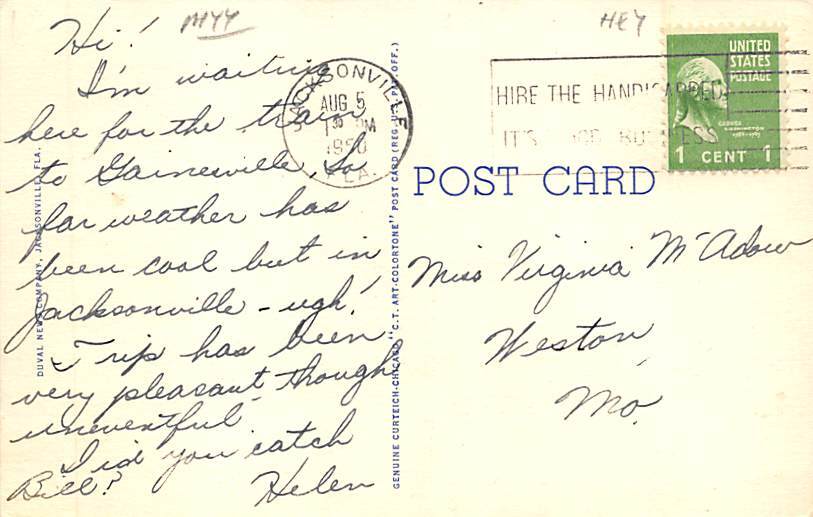 Hi!
I'm waiting
here for the train
to Gainesville. So
far weather has
been cool but in
Jacksonville - ugh!
Trip has been
very pleasant though
uneventful.
Did you catch
Bill? Helen
MYY
HEY
JACKSONVILLE
AUG 5
1 30 PM
1950
FLA.
HIRE THE HANDICAPPED
IT'S GOOD BUSINESS
UNITED
STATES
POSTAGE
GEORGE
WASHINGTON
1 CENT 1
POST CARD
Miss Virginia McAdow
Weston
Mo.
DUVAL NEWS COMPANY, JACKSONVILLE, FLA.
GENUINE CURTEICH-CHICAGO "C.T. ART-COLORTONE" POST CARD (REG. U.S. PAT. OFF.)